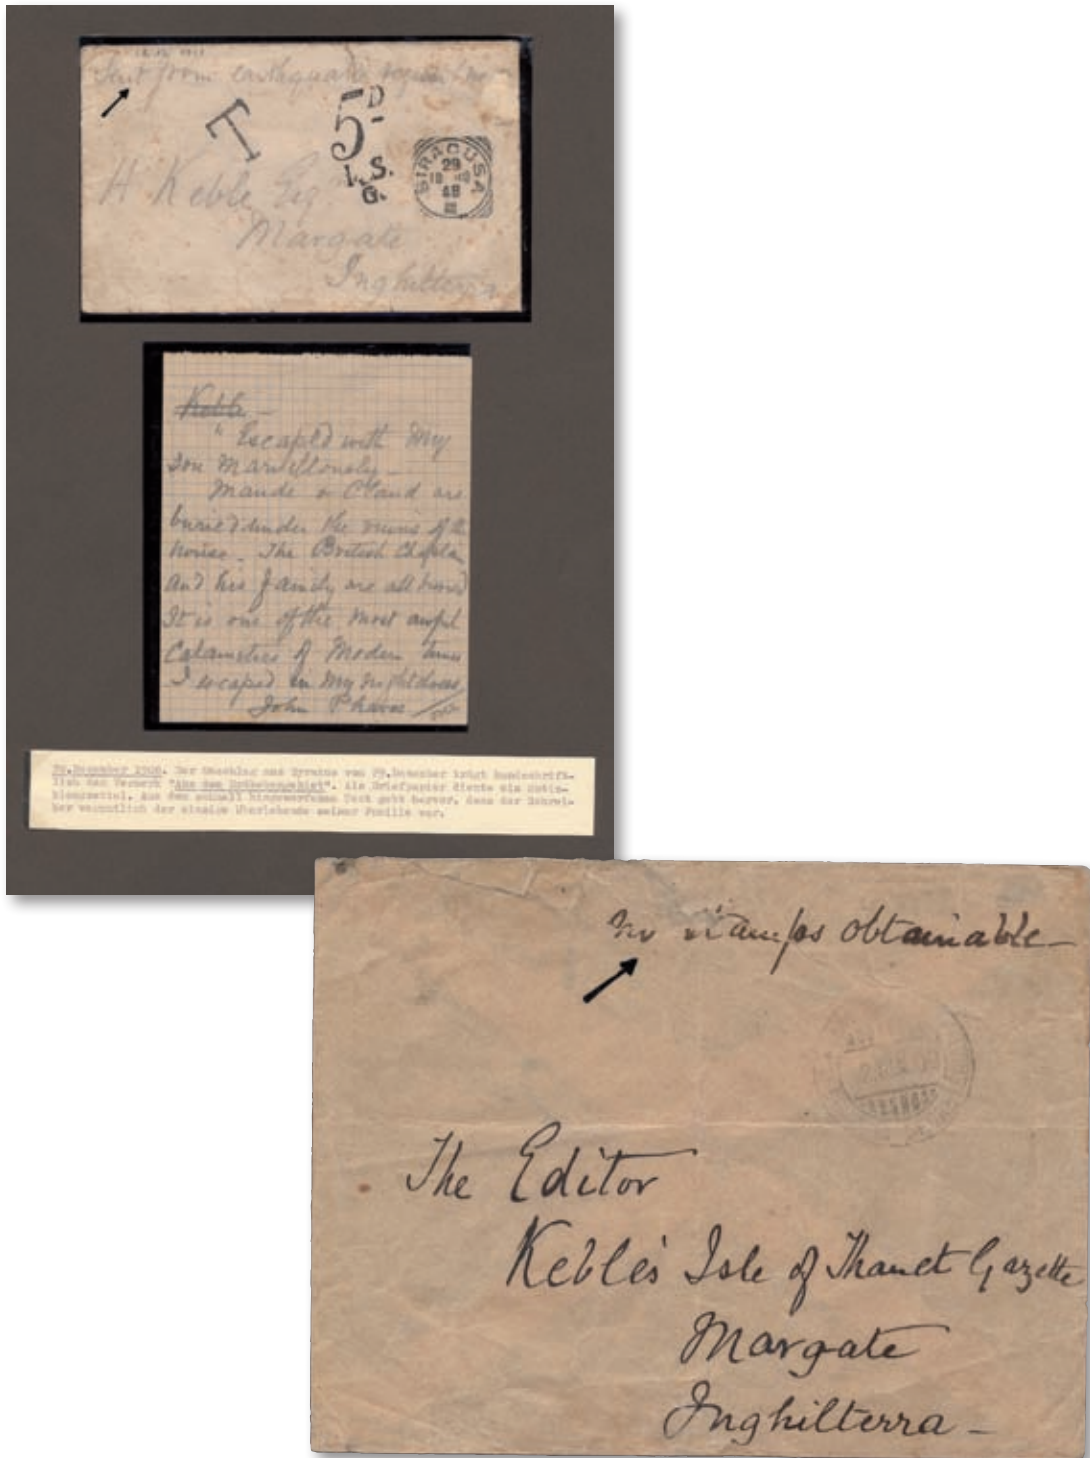 Sent from earthquake region no
T
5D
I.S.
G.
SIRACUSA
29
48
H Keble Esq
Margate
Inghilterra
Keble -
"Escaped with my
Son Marvellously -
Maude & Claud are
buried under the ruins of the
house. The British Chaplain
and his family are all buried
It is one of the most awful
Calamities of Modern times
I escaped in my nightdress
John
29. December 1908. Der Umschlag aus Syrakus vom 29. Dezember trägt handschrift-
lich den Vermerk "Aus dem Erdbebengebiet". Als Briefpapier diente ein Notiz-
blockzettel. Aus dem schnell hingeworfenen Text geht hervor, dass der Schrei-
ber vermutlich der einzige Überlebende seiner Familie war.
no stamps obtainable -
The Editor
Keble's Isle of Thanet Gazette
Margate
Inghilterra -